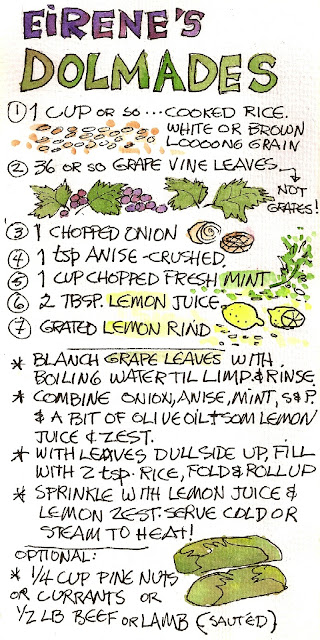 EiRENE'S
DOLMADES
① 1 CUP OR SO ... COOKED RICE.
WHITE OR BROWN
LOOOONG GRAIN
② 36 OR SO GRAPE VINE LEAVES
NOT
GRAPES!
③ 1 CHOPPED ONION
④ 1 tsp ANISE-CRUSHED
⑤ 1 CUP CHOPPED FRESH MINT
⑥ 2 TBSP. LEMON JUICE
⑦ GRATED LEMON RIND
* BLANCH GRAPE LEAVES WITH
BOILING WATER TIL LIMP & RINSE.
* COMBINE ONION, ANISE, MINT, S&P.
& A BIT OF OLIVE OIL + SOM LEMON
JUICE & ZEST.
* WITH LEAVES DULLSIDE UP, FILL
WITH 2 tsp. RICE, FOLD & ROLL UP
* SPRINKLE WITH LEMON JUICE &
LEMON ZEST. SERVE COLD OR
STEAM TO HEAT!
OPTIONAL:
* 1/4 CUP PINE NUTS
OR CURRANTS OR
1/2 LB BEEF OR LAMB (SAUTÉD)